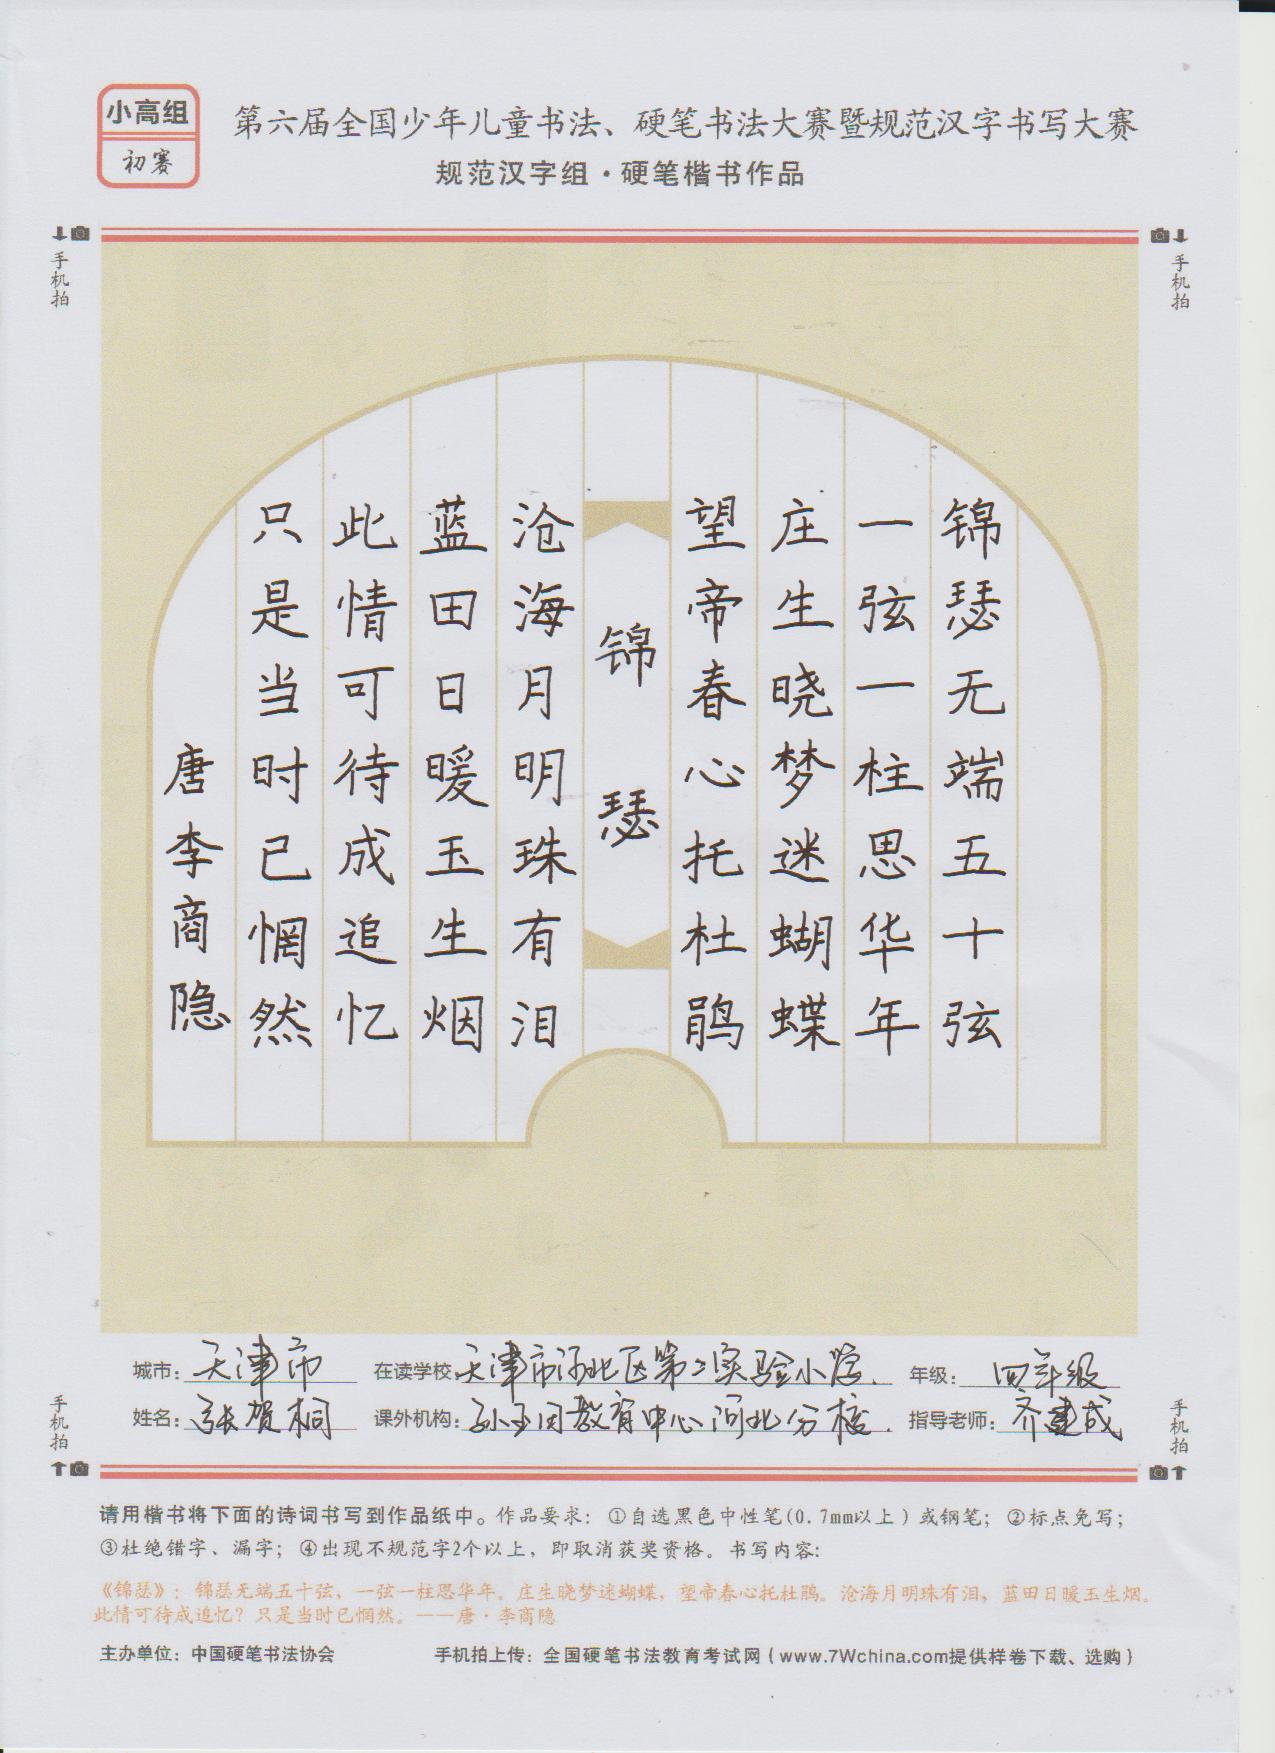 小高组
初赛
第六届全国少年儿童书法、硬笔书法大赛暨规范汉字书写大赛
规范汉字组·硬笔楷书作品
手机拍
手机拍
锦瑟无端五十弦
一弦一柱思华年
庄生晓梦迷蝴蝶
望帝春心托杜鹃
锦瑟
沧海月明珠有泪
蓝田日暖玉生烟
此情可待成追忆
只是当时已惘然
唐李商隐
城市：天津市 在读学校：天津市河北区第二实验小学. 年级：四年级
姓名：张贺桐 课外机构：孙玉田教育中心河北分校. 指导老师：齐建成
手机拍
手机拍
请用楷书将下面的诗词书写到作品纸中。作品要求：①自选黑色中性笔(0.7mm以上）或钢笔；②标点免写；
③杜绝错字、漏字；④出现不规范字2个以上，即取消获奖资格。书写内容：
《锦瑟》：锦瑟无端五十弦，一弦一柱思华年。庄生晓梦迷蝴蝶，望帝春心托杜鹃。沧海月明珠有泪，蓝田日暖玉生烟。
此情可待成追忆？只是当时已惘然。——唐·李商隐
主办单位：中国硬笔书法协会 手机拍上传：全国硬笔书法教育考试网（www.7Wchina.com提供样卷下载、选购）